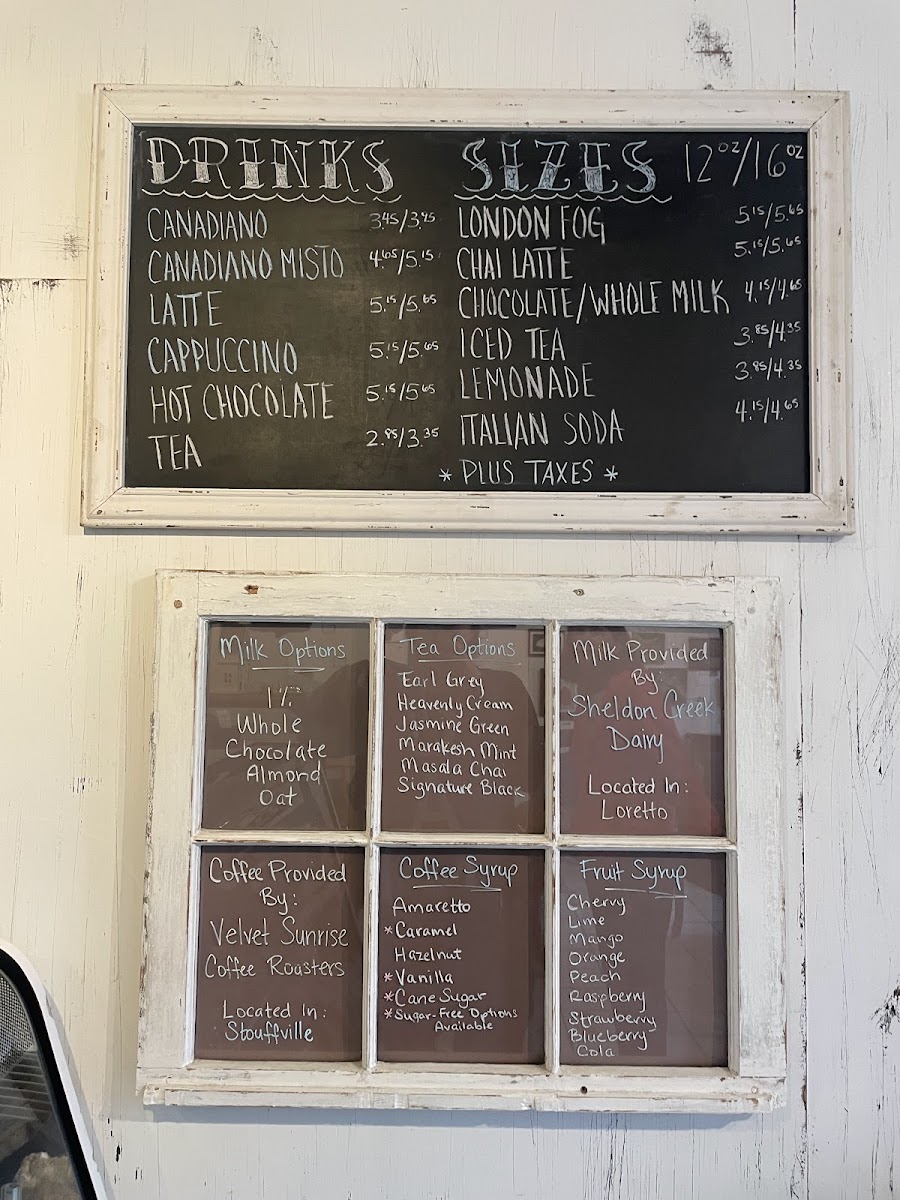 DRINKS
CANADIANO 3.45/3.95
CANADIANO MISTO 4.65/5.15
LATTE 5.15/5.65
CAPPUCCINO 5.15/5.65
HOT CHOCOLATE 5.15/5.65
TEA 2.85/3.35
SIZES 12oz/16oz
LONDON FOG 5.15/5.65
CHAI LATTE 5.15/5.65
CHOCOLATE/WHOLE MILK 4.15/4.65
ICED TEA 3.85/4.35
LEMONADE 3.85/4.35
ITALIAN SODA 4.15/4.65
* PLUS TAXES *
Milk Options
1%
Whole
Chocolate
Almond
Oat
Tea Options
Earl Grey
Heavenly Cream
Jasmine Green
Marakesh Mint
Masala Chai
Signature Black
Milk Provided
By:
Sheldon Creek
Dairy
Located In:
Loretto
Coffee Provided
By:
Velvet Sunrise
Coffee Roasters
Located In:
Stouffville
Coffee Syrup
Amaretto
*Caramel
Hazelnut
*Vanilla
*Cane Sugar
*Sugar-Free Options
Available
Fruit Syrup
Cherry
Lime
Mango
Orange
Peach
Raspberry
Strawberry
Blueberry
Cola